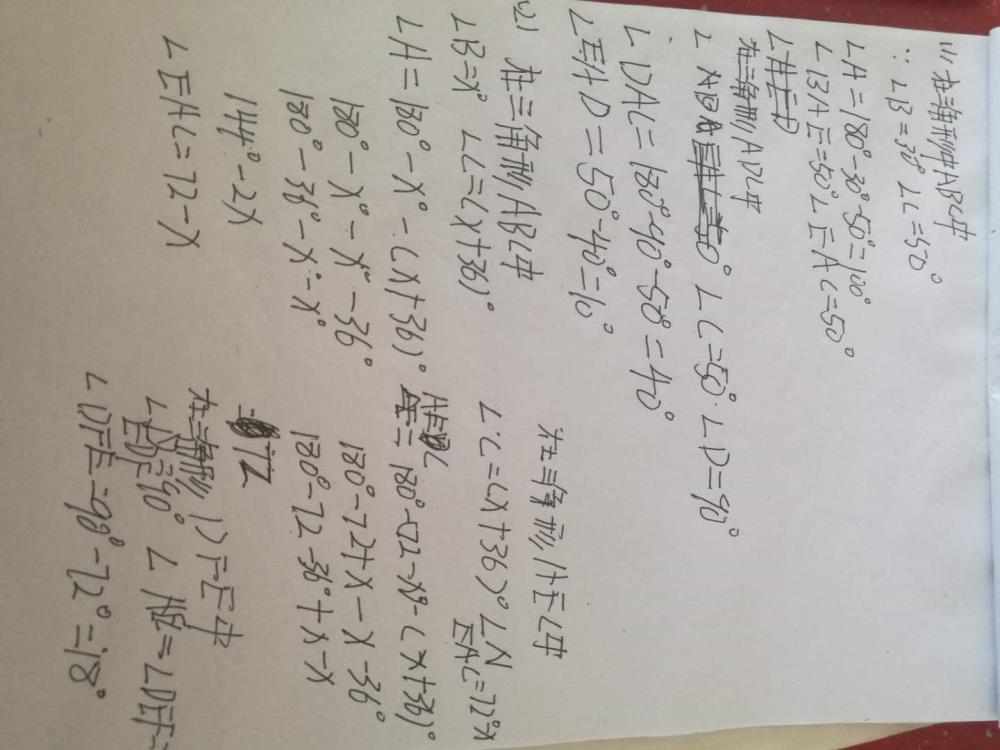 (1) 在三角形ABC中
∵ ∠B=30° ∠C=50°
∠A=180°-30°-50°=100°
∠BAE=50° ∠EAC=50°
∠AED
在三角形ADC中
∠ADA 50° ∠C=50° ∠D=90°
∠DAC=180°-90°-50°=40°
∠EAD=50°-40°=10°
(2) 在三角形ABC中
∠B=x° ∠C=(x+36)°
∠A=180°-x°-(x+36)°
180°-x°-x°-36°
180°-36°-x°-x°
144°-2x
∠EAC=72-x
在三角形AEC中
∠C=(x+36)° ∠EAC=72°-x
AEC=180°-(72-x)°-(x+36)°
180°-72+x-x-36°
180°-72-36°+x-x
=72
在三角形DFE中
∠EDF=90° ∠AEC=∠DEF=
∠DFE=90°-72°=18°